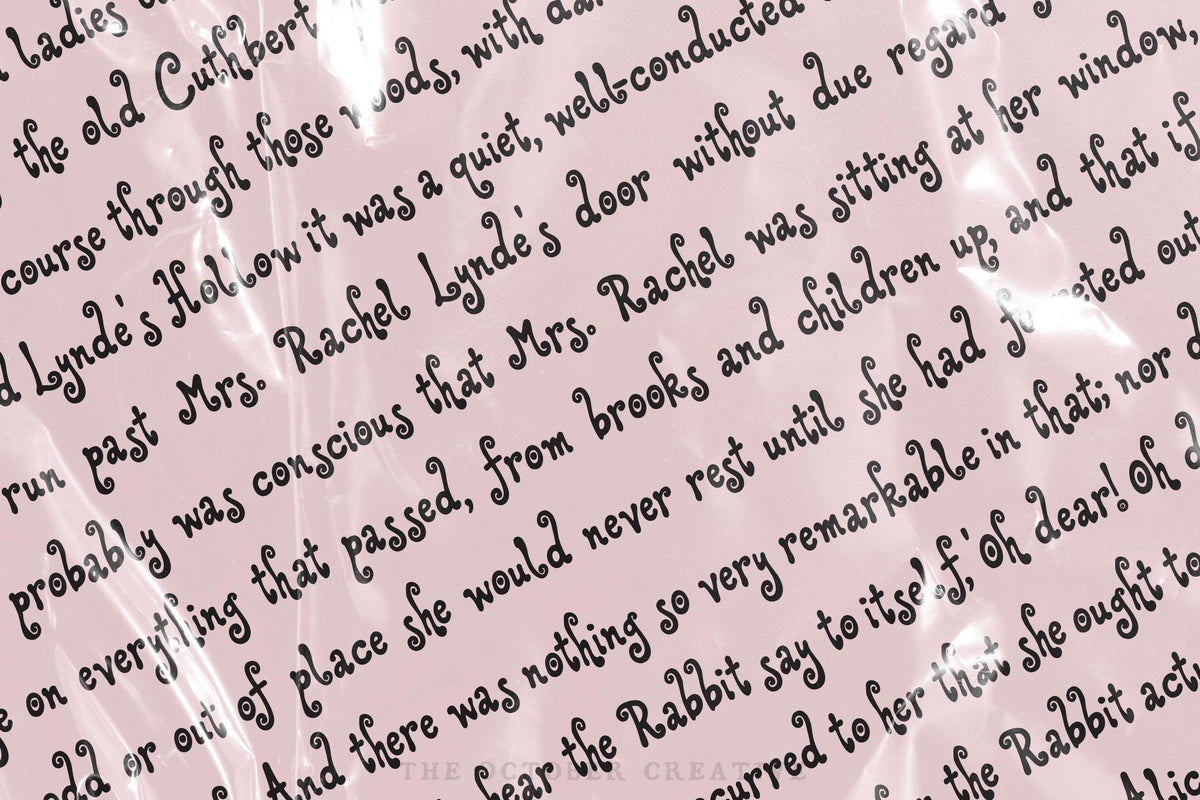 ladies
the old Cuthbert
course through those woods, with
Lynde's Hollow it was a quiet, well-conducted
run past Mrs. Rachel Lynde's door without due regard
probably was conscious that Mrs. Rachel was sitting at her window,
on everything that passed, from brooks and children up, and that if
odd or out of place she would never rest until she had out
And there was nothing so very remarkable in that; nor
hear the Rabbit say to itself, 'Oh dear! Oh
to her that she ought to
the Rabbit
THE OCTOBER CREATIVE